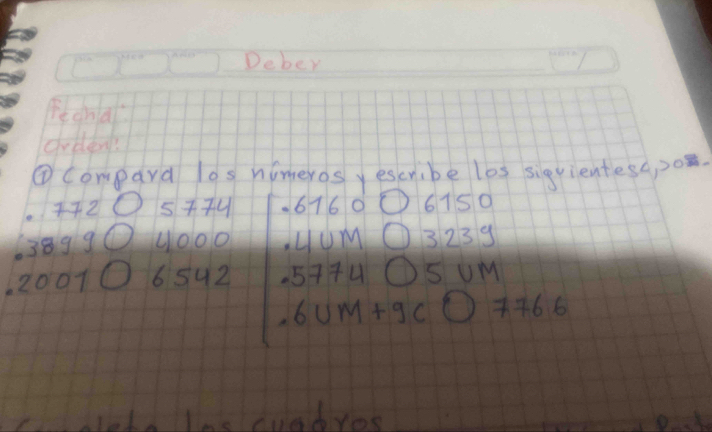 Deber
Fecha:
Orden:
① Compara los números y escribe los siguientes <, > o =.
. 772 ○ 5774
.3899 ○ 4000
.2001 ○ 6542
.6160 ○ 6150
.4UM ○ 3239
.5774 ○ 5 UM
.6UM + 9C ○ 7766
los cuadros